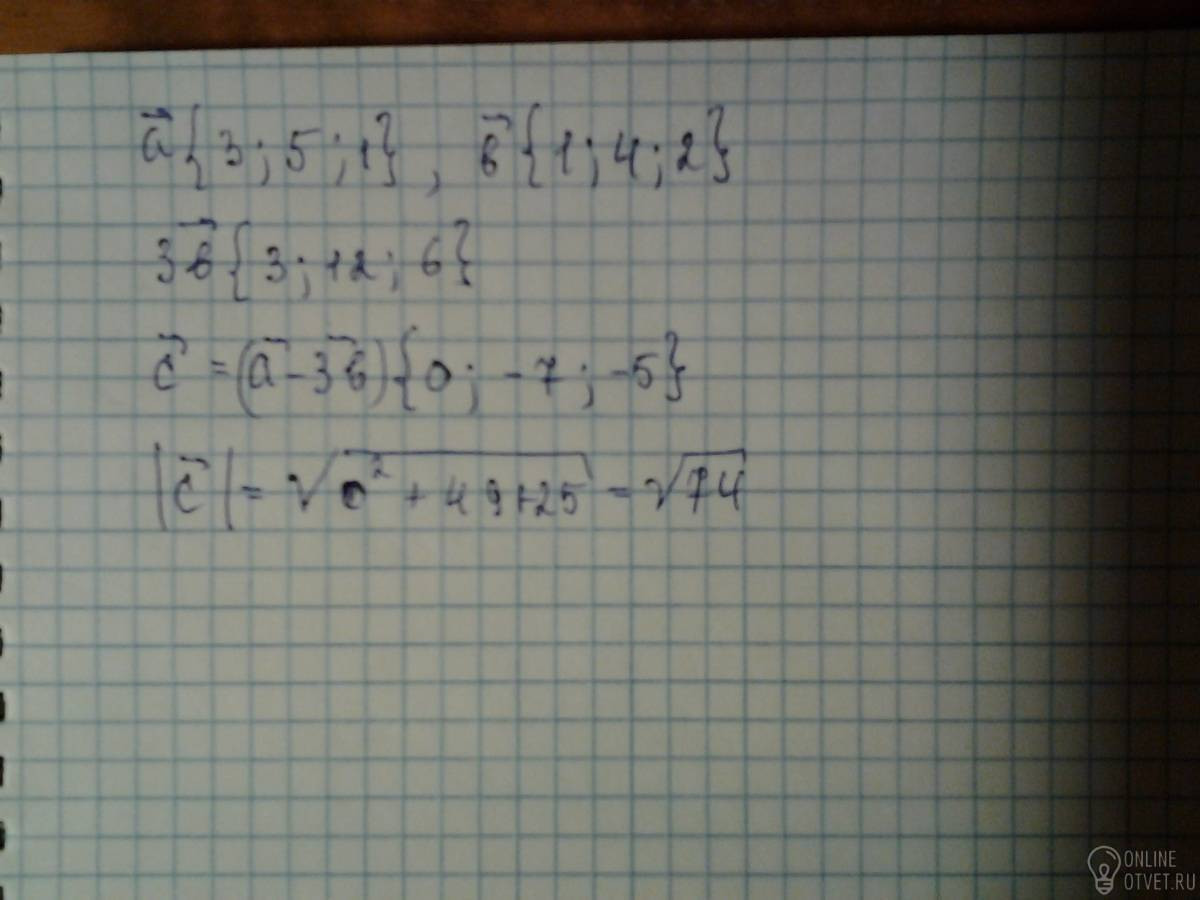 a⃗ {3; 5; 1}, b⃗ {1; 4; 2}
3b⃗ {3; 12; 6}
c⃗ = (a⃗ - 3b⃗) {0; -7; -5}
|c⃗| = √(0² + 49 + 25) = √74
ONLINE
OTVET.RU